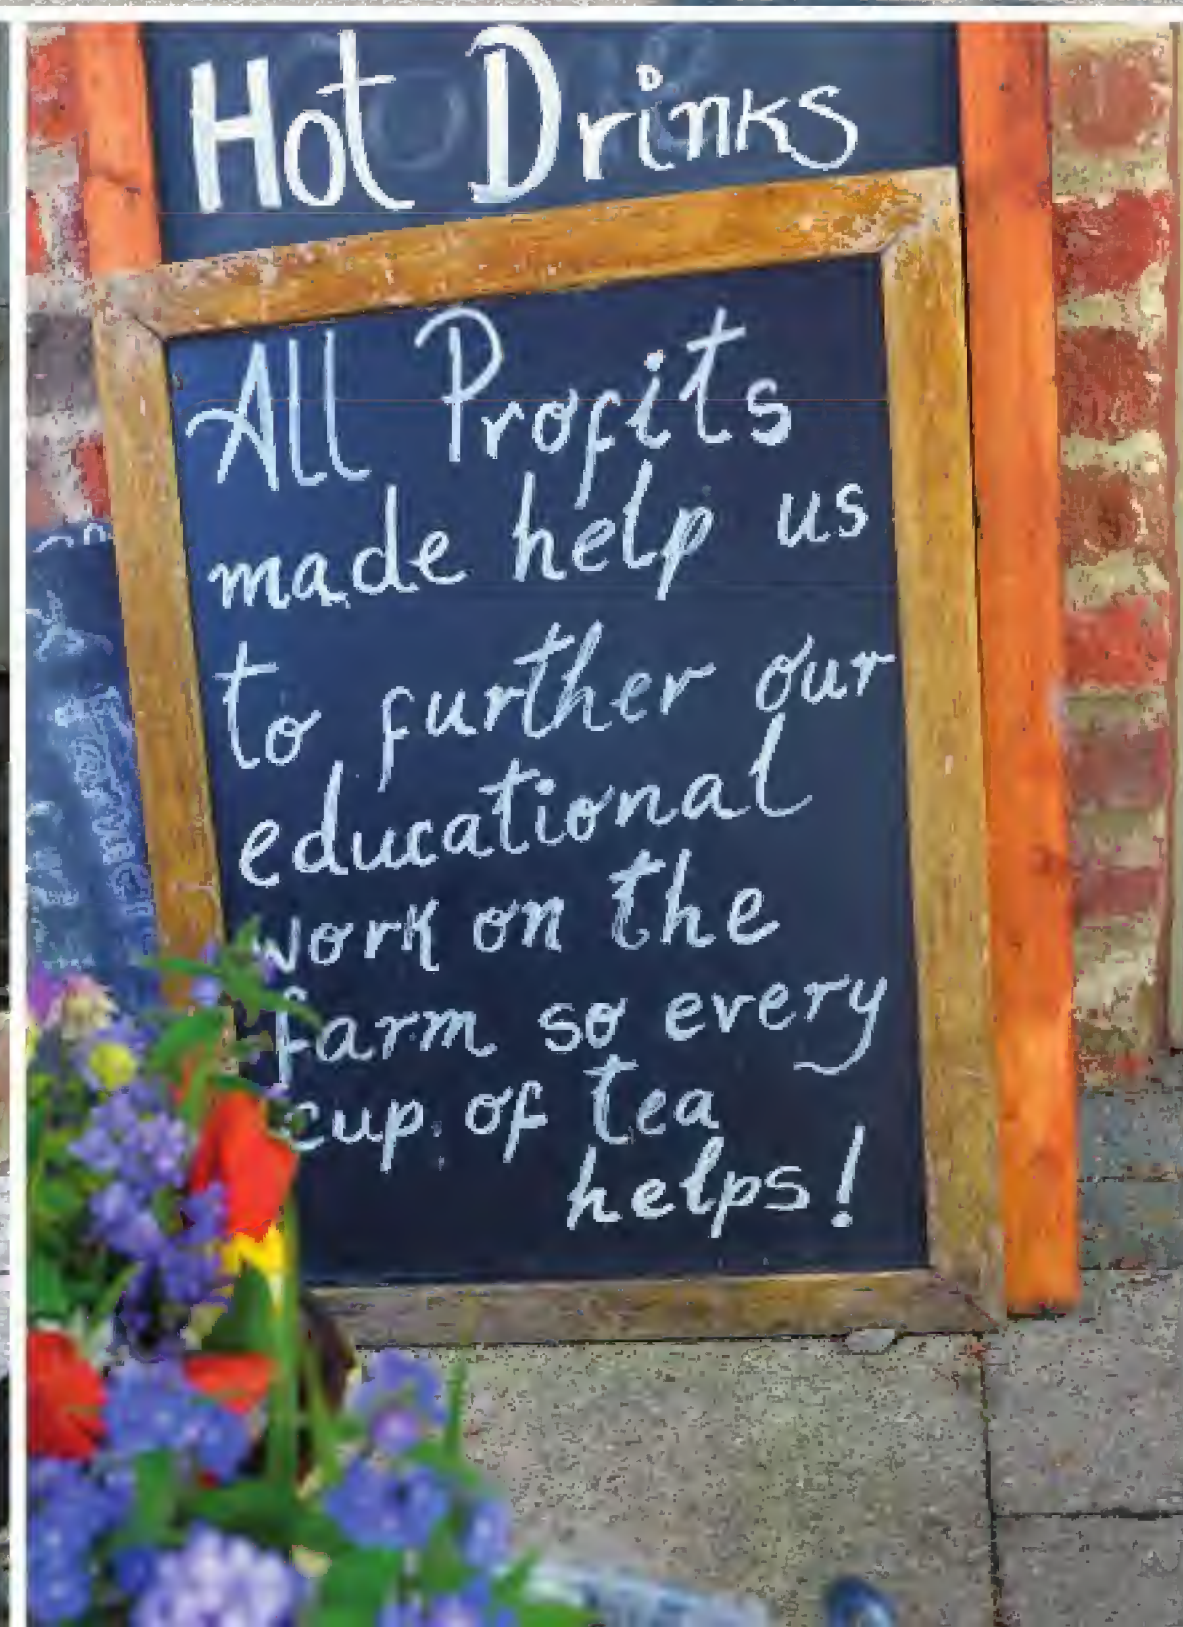 Hot Drinks
All Profits
made help us
to further our
educational
work on the
farm so every
cup of tea
helps!